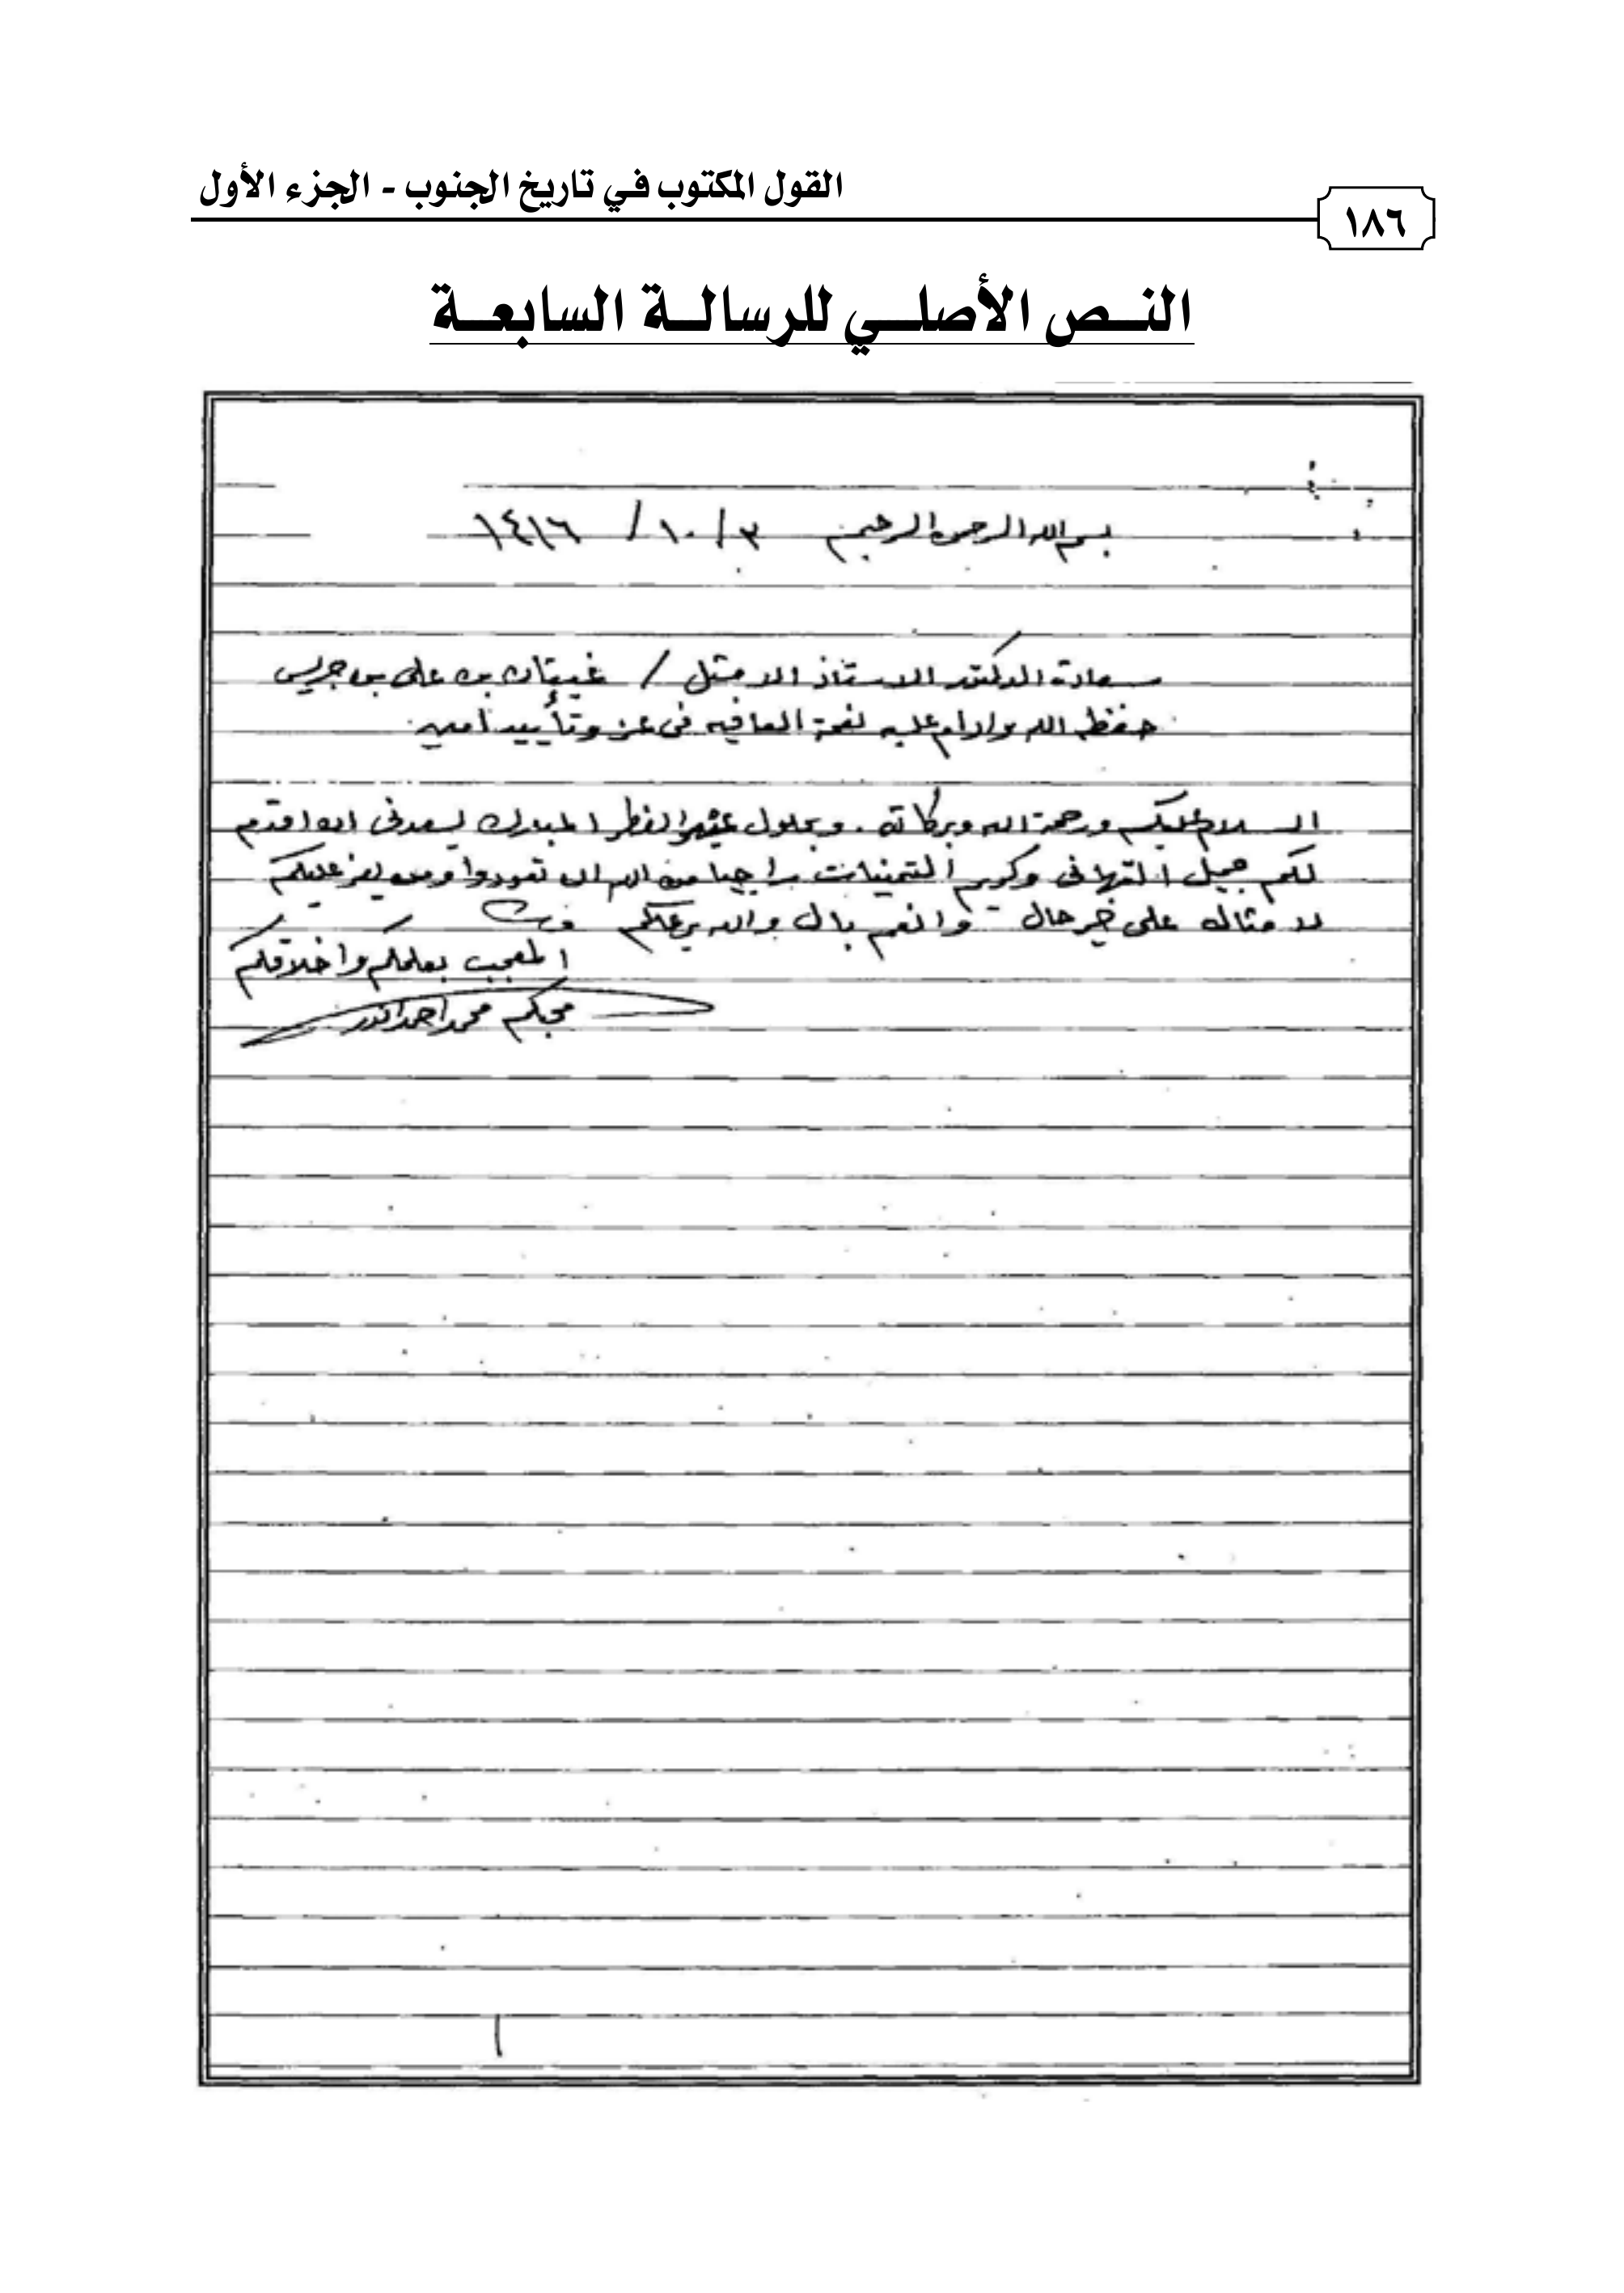 القول المكتوب في تاريخ الجنوب - الجزء الأول
١٨٦
النص الأصلي للرسالة السابعة
بسم الله الرحمن الرحيم ٣/١٠/١٤١٦
سعادة الدكتور الاستاذ الامثل / غيثان بن على بن جريس
حفظه الله وادام عليه نعمة العافيه فى عز وتأييد امين
السلام عليكم ورحمة الله وبركاته. وبحلول عيد الفطر المبارك يسعدنى ان اقدم
لكم جميل التهانى وكريم التمنيات راجيا من الله ان تعودوا ومن يعز عليكم
لامثاله على خير حال وانعم بال والله يرعاكم
المعجب بعلمكم واخلاقكم
محبكم محمد احمد انور